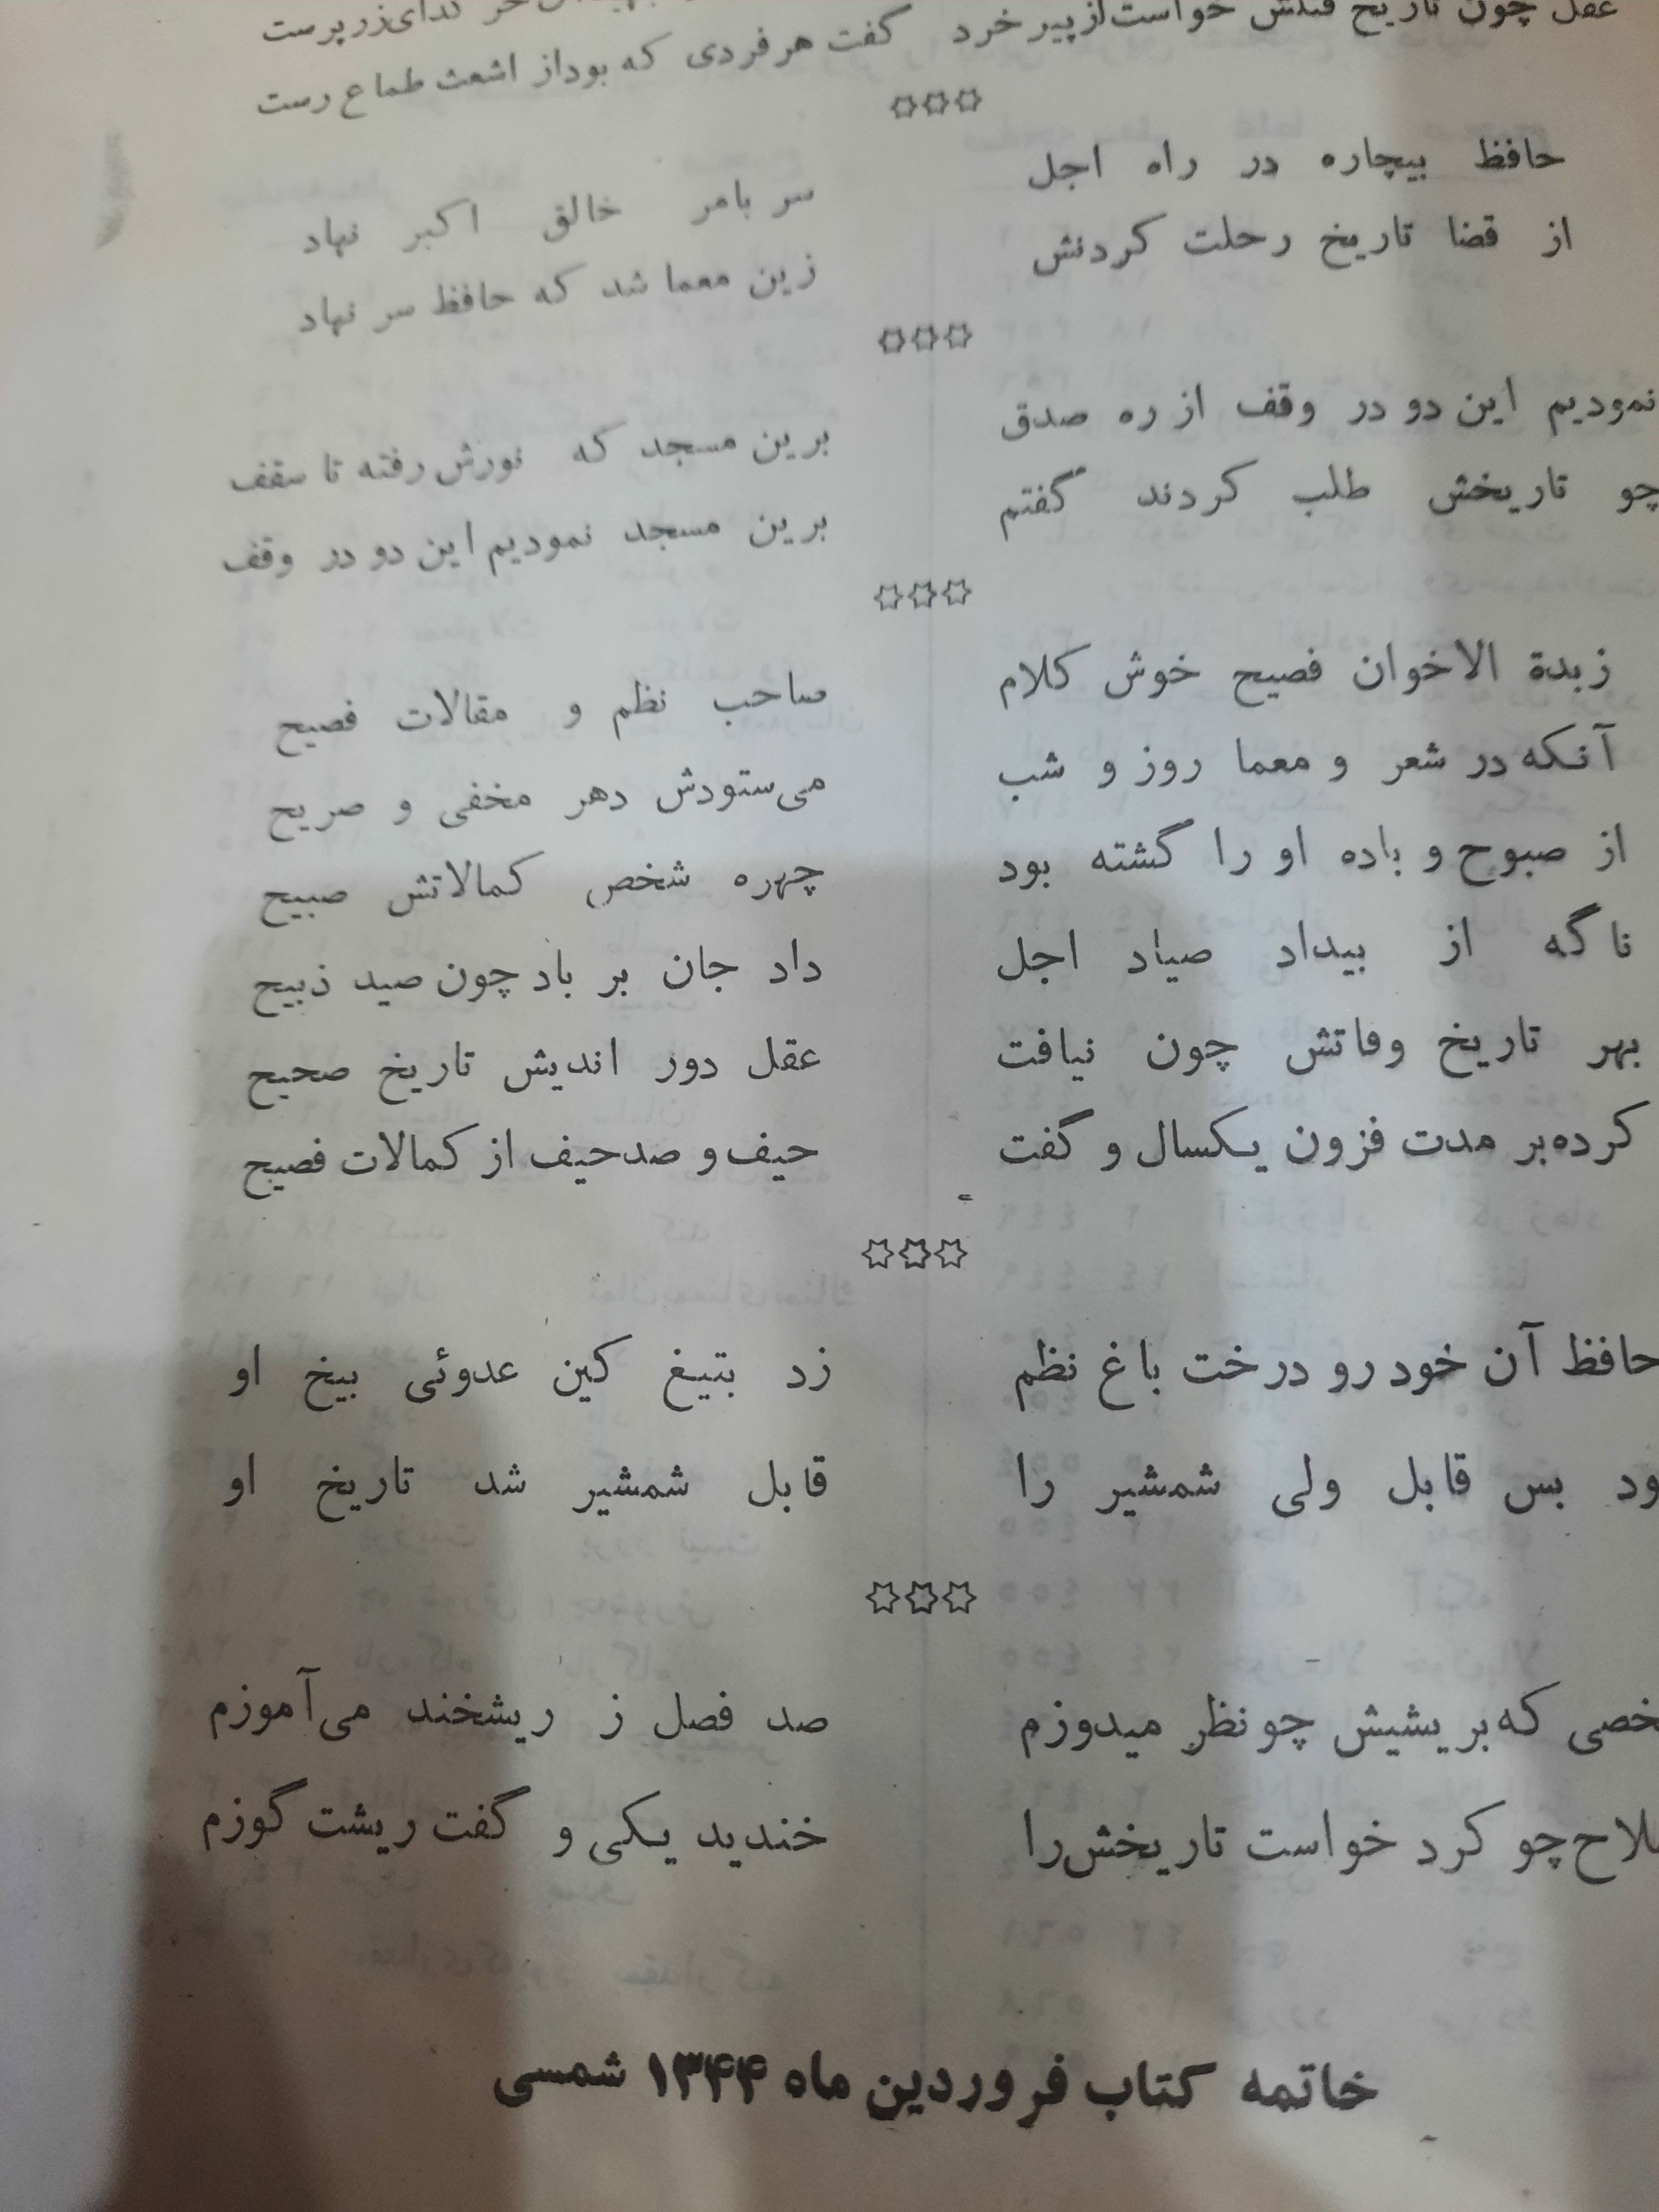 عقل چون تاریخ قتلش خواست از پیر خرد گفت هر فردی که بود از اشعث طماع رست
گدای زر پرست
***
حافظ بیچاره در راه اجل سر بامر خالق اکبر نهاد
از قضا تاریخ رحلت کردنش زین معما شد که حافظ سر نهاد
***
نمودیم این دو در وقف از ره صدق برین مسجد که نورش رفته تا سقف
چو تاریخش طلب کردند گفتم برین مسجد نمودیم این دو در وقف
***
زبدة الاخوان فصیح خوش کلام صاحب نظم و مقالات فصیح
آنکه در شعر و معما روز و شب می‌ستودش دهر مخفی و صریح
از صبوح و باده او را گشته بود چهره شخص کمالاتش صبیح
ناگه از بیداد صیاد اجل داد جان بر باد چون صید ذبیح
بهر تاریخ وفاتش چون نیافت عقل دور اندیش تاریخ صحیح
کرده بر مدت فزون یکسال و گفت حیف و صد حیف از کمالات فصیح
***
حافظ آن خود رو درخت باغ نظم زد بتیغ کین عدوئی بیخ او
ود بس قابل ولی شمشیر را قابل شمشیر شد تاریخ او
***
خصی که بریشیش چو نظر میدوزم صد فصل ز ریشخند می‌آموزم
لاح چو کرد خواست تاریخش را خندید یکی و گفت ریشت گوزم
خاتمه کتاب فروردین ماه ۱۳۴۴ شمسی